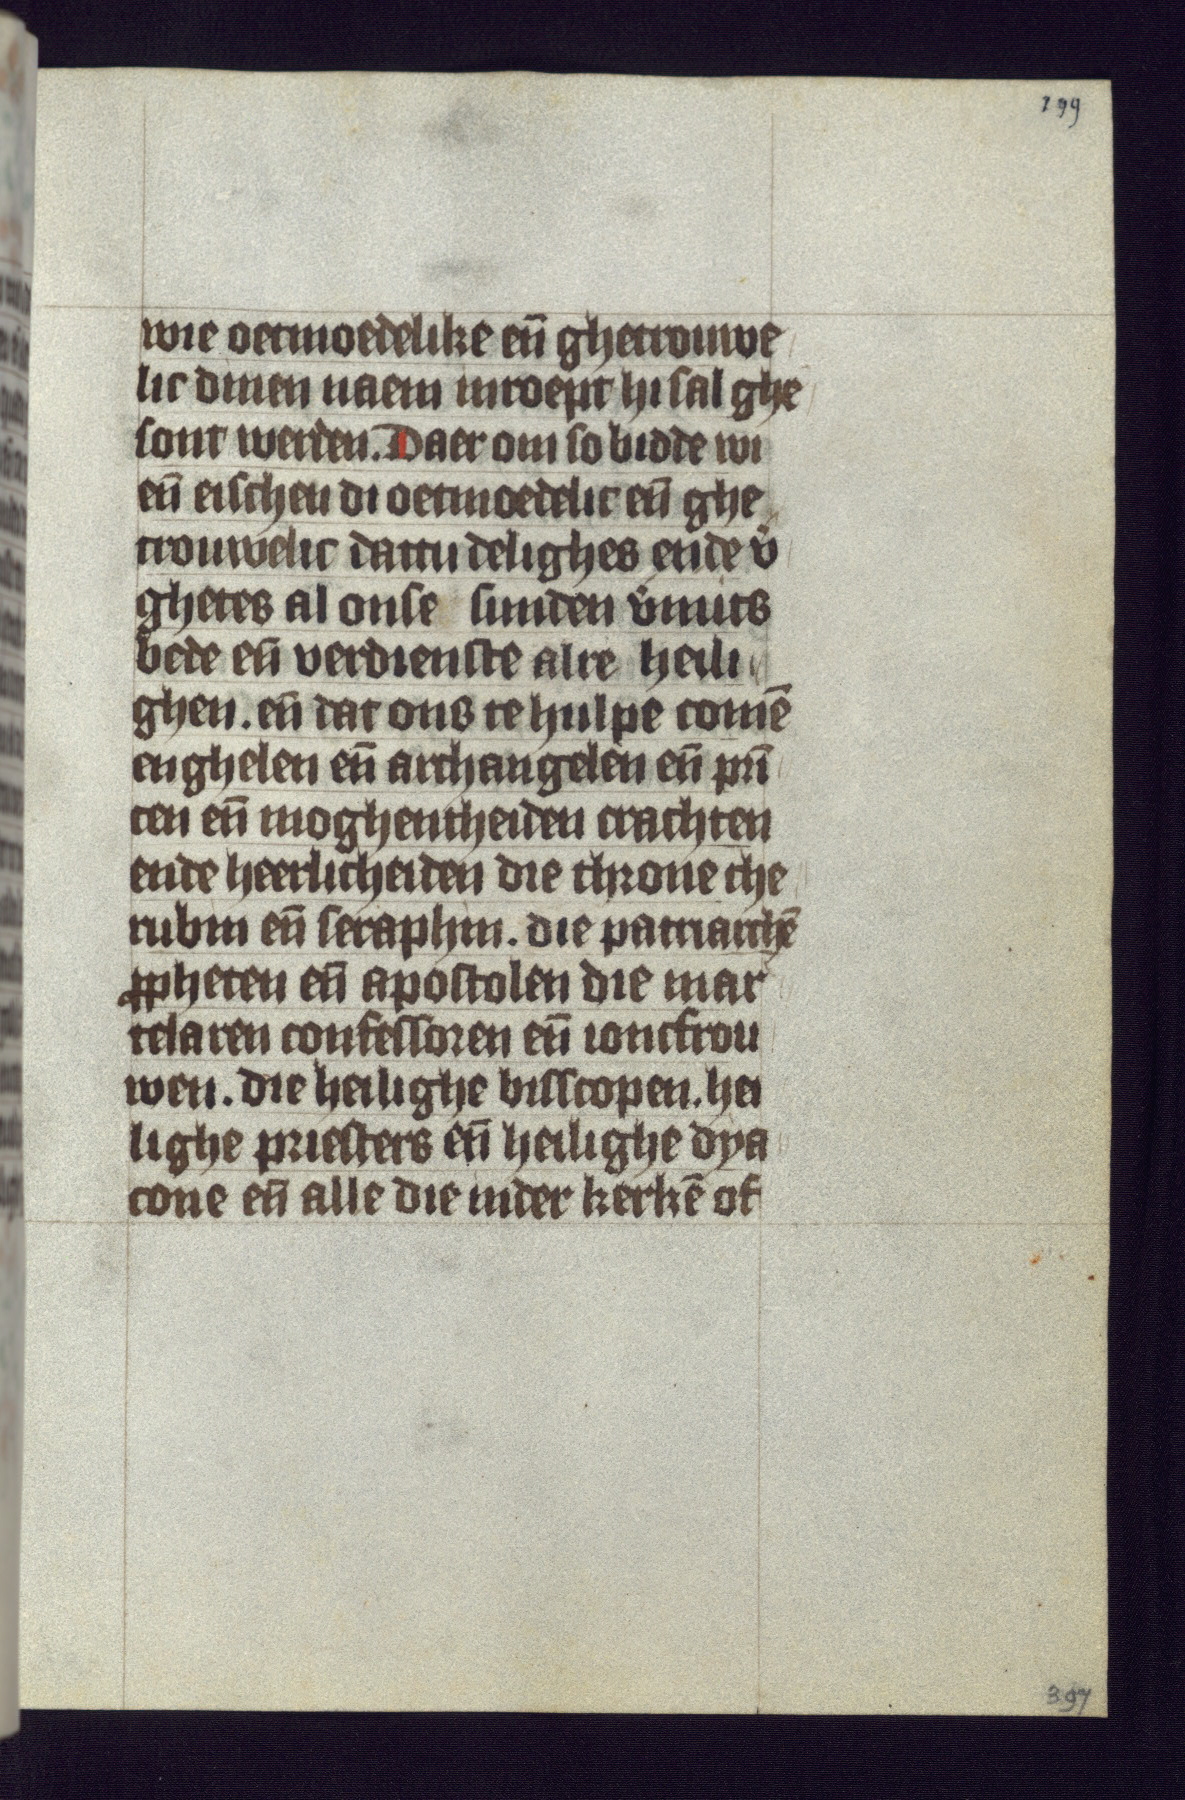 199
wie oetmoedelike en̄ ghetrouwe
lic dinen naem inroept hi sal ghe
sont werden. Daer om so bidde wi
en̄ eischen di oetmoedelic en̄ ghe
trouwelic dattu delighes ende v̾
ghetes al onse sunden v̾mits
bede en̄ verdienste alre heili
ghen. en̄ dat ons te hulpe comē
enghelen en̄ archangelen en̄ prī
cen en̄ moghentheiden crachten
ende heerlicheiden die throne che
rubin en̄ seraphin. die patriarchē
ꝓpheten en̄ apostolen die mar
telaren confessoren en̄ ioncfrou
wen. die heilighe bisscopen. hei
lighe priesters en̄ heilighe dya
cone en̄ alle die inder kerkē of
397